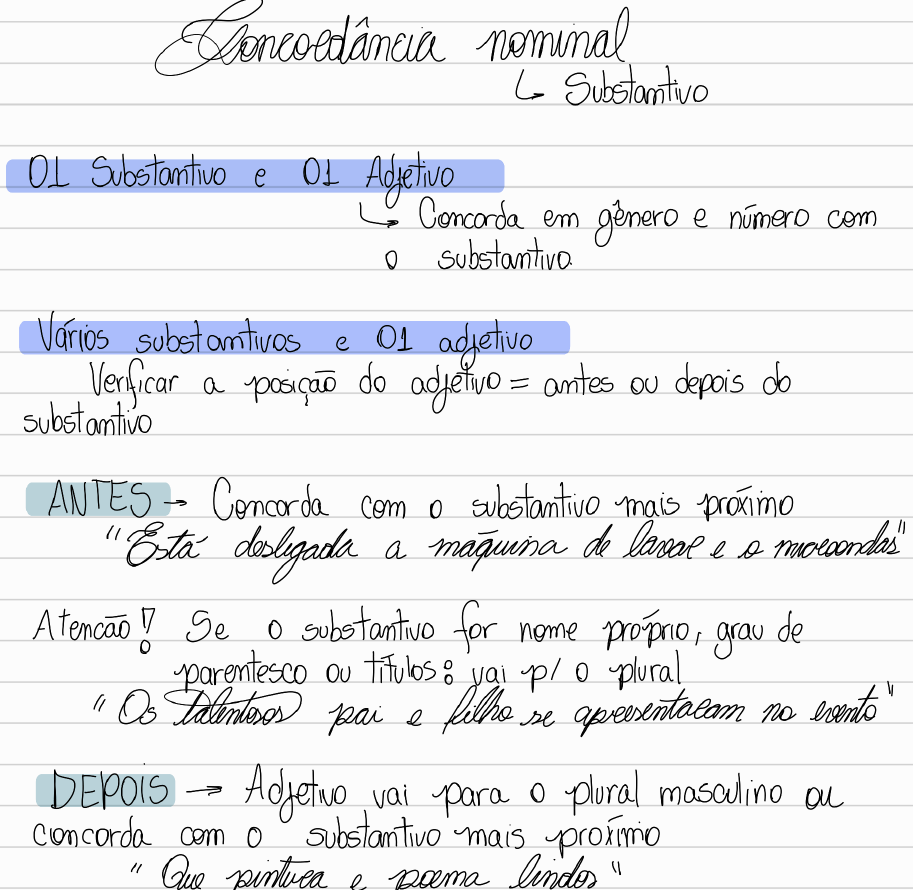 Concordância nominal
↳ Substantivo
01 Substantivo e 01 Adjetivo
↳ Concorda em gênero e número com
o substantivo.
Vários substantivos e 01 adjetivo
Verificar a posição do adjetivo = antes ou depois do
substantivo
ANTES → Concorda com o substantivo mais próximo
"Está desligada a máquina de lavar e o microondas"
Atencão! Se o substantivo for nome próprio, grau de
parentesco ou títulos: vai p/ o plural
"Os talentosos pai e filho se apresentaram no evento"
DEPOIS → Adjetivo vai para o plural masculino ou
concorda com o substantivo mais proxímo
"Que pintura e poema lindos"